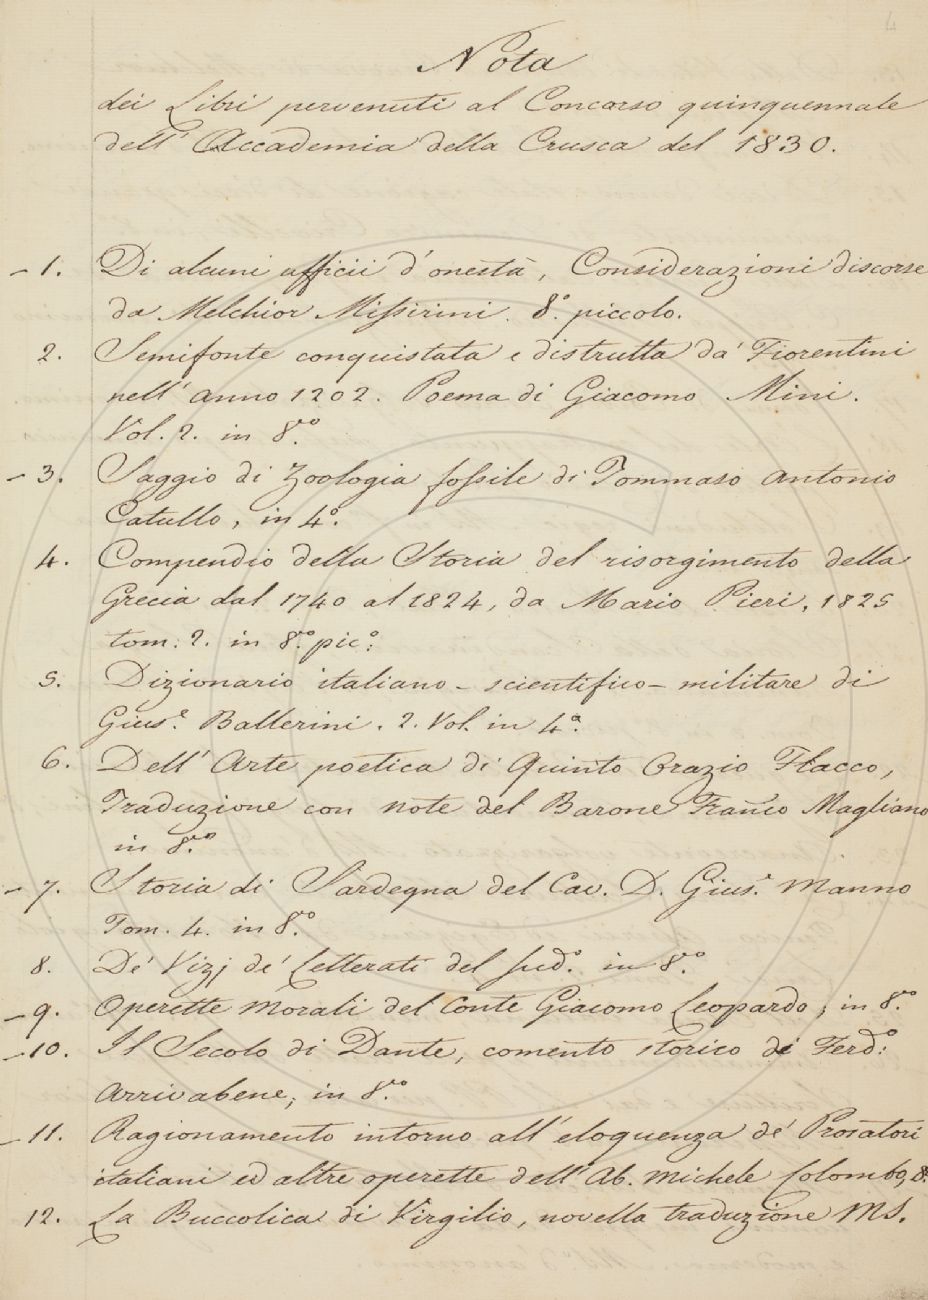 4
Nota
dei Libri pervenuti al Concorso quinquennale
dell' Accademia della Crusca del 1830.
- 1. Di alcuni ufficii d'onestà, Considerazioni discorse
da Melchior Missirini. 8.° piccolo.
2. Semifonte conquistata e distrutta da' Fiorentini
nell' anno 1202. Poema di Giacomo Mini.
Vol. 2. in 8.vo
- 3. Saggio di Zoologia fossile di Tommaso Antonio
Catullo, in 4.°
4. Compendio della Storia del risorgimento della
Grecia dal 1740 al 1824, da Mario Pieri, 1825
tom: 2. in 8.vo pic:°
5. Dizionario italiano - scientifico - militare di
Gius.e Ballerini. 2. Vol. in 4.°
6. Dell' Arte poetica di Quinto Orazio Flacco,
Traduzione con note del Barone Franco Magliano
in 8.vo
- 7. Storia di Sardegna del Cav. D. Gius.e Manno
Tom. 4. in 8.vo
8. De' Vizj de' Letterati del sud.° in 8.vo
- 9. Operette Morali del Conte Giacomo Leopardo; in 8.vo
- 10. Il Secolo di Dante, comento storico di Ferd:°
Arrivabene, in 8.vo
- 11. Ragionamento intorno all' eloquenza de' Prosatori
italiani ed altre operette dell' Ab. Michele Colombo, 8.°
12. La Buccolica di Virgilio, novella traduzione MS.